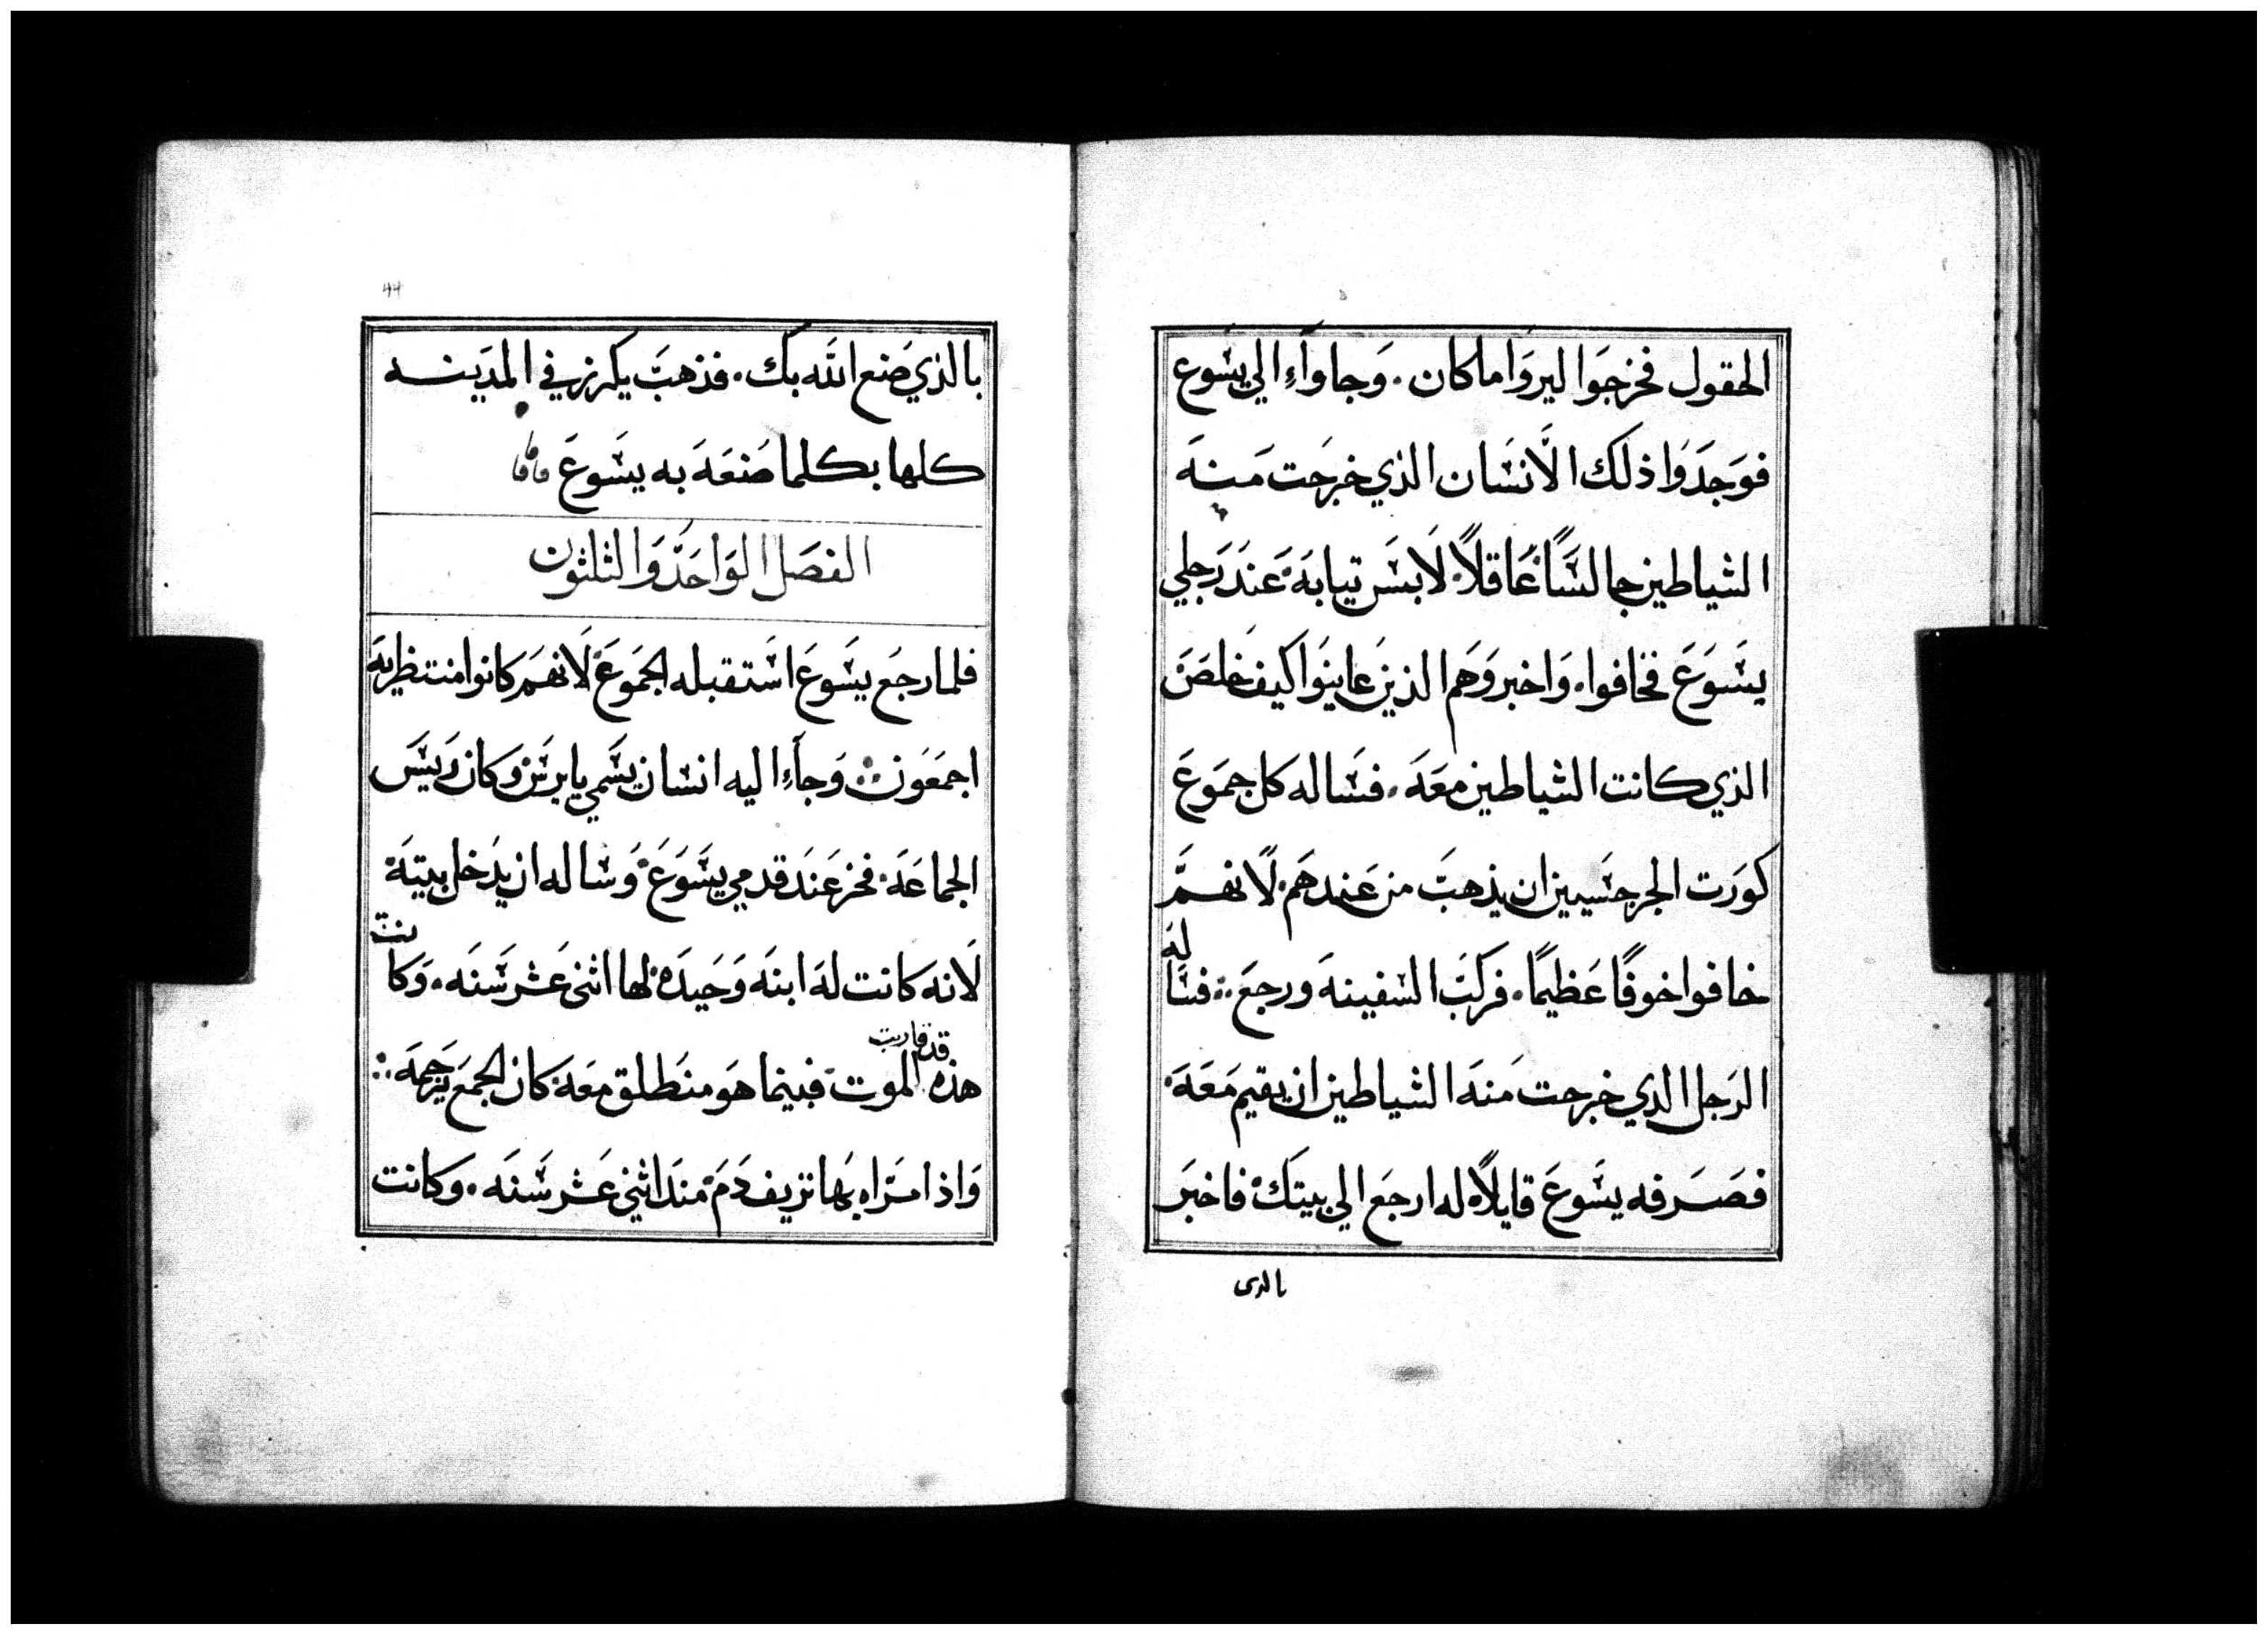 الحقول فخرجوا ليروا ماكان. وجاوآءِ الي يسوع
فوجدوا ذلك الانسان الذي خرجت منه
الشياطين جالسًا عاقلًا. لابس تيابه عند رجلي
يسوع فخافوا. واخبروهم الذين عاينوا كيف خلص
الذي كانت الشياطين معه. فساله كل جموع
كورت الجرجسيين ان يذهب من عندهم. لانهم
خافوا خوفًا عظيمًا. فركب السفينه ورجع .: فساله
الرجل الذي خرجت منه الشياطين ان يقيم معه.
فصرفه يسوع قايلًا له ارجع الي بيتك. فاخبر
بالدى
44
بالذي صنع الله بك. فذهب يكرز في المدينه
كلها بكلما صنعه به يسوع
الفصل الواحد والثلثون
فلما رجع يسوع استقبله الجموع لانهم كانوا منتظرينه
اجمعون .: وجآءِ اليه انسان يسمي يايرس وكان رييس
الجماعه. فخر عند قدمي يسوع. وساله ان يدخل بيته
لانه كانت له ابنه وحيده. لها اثني عشر سنه. وكانت
هذه قد قاربت الموت. فبينما هو منطلق معه. كان الجمع يزحمه .:
واذا مراه بها نزيف دم. مند اثني عشر سنه. وكانت